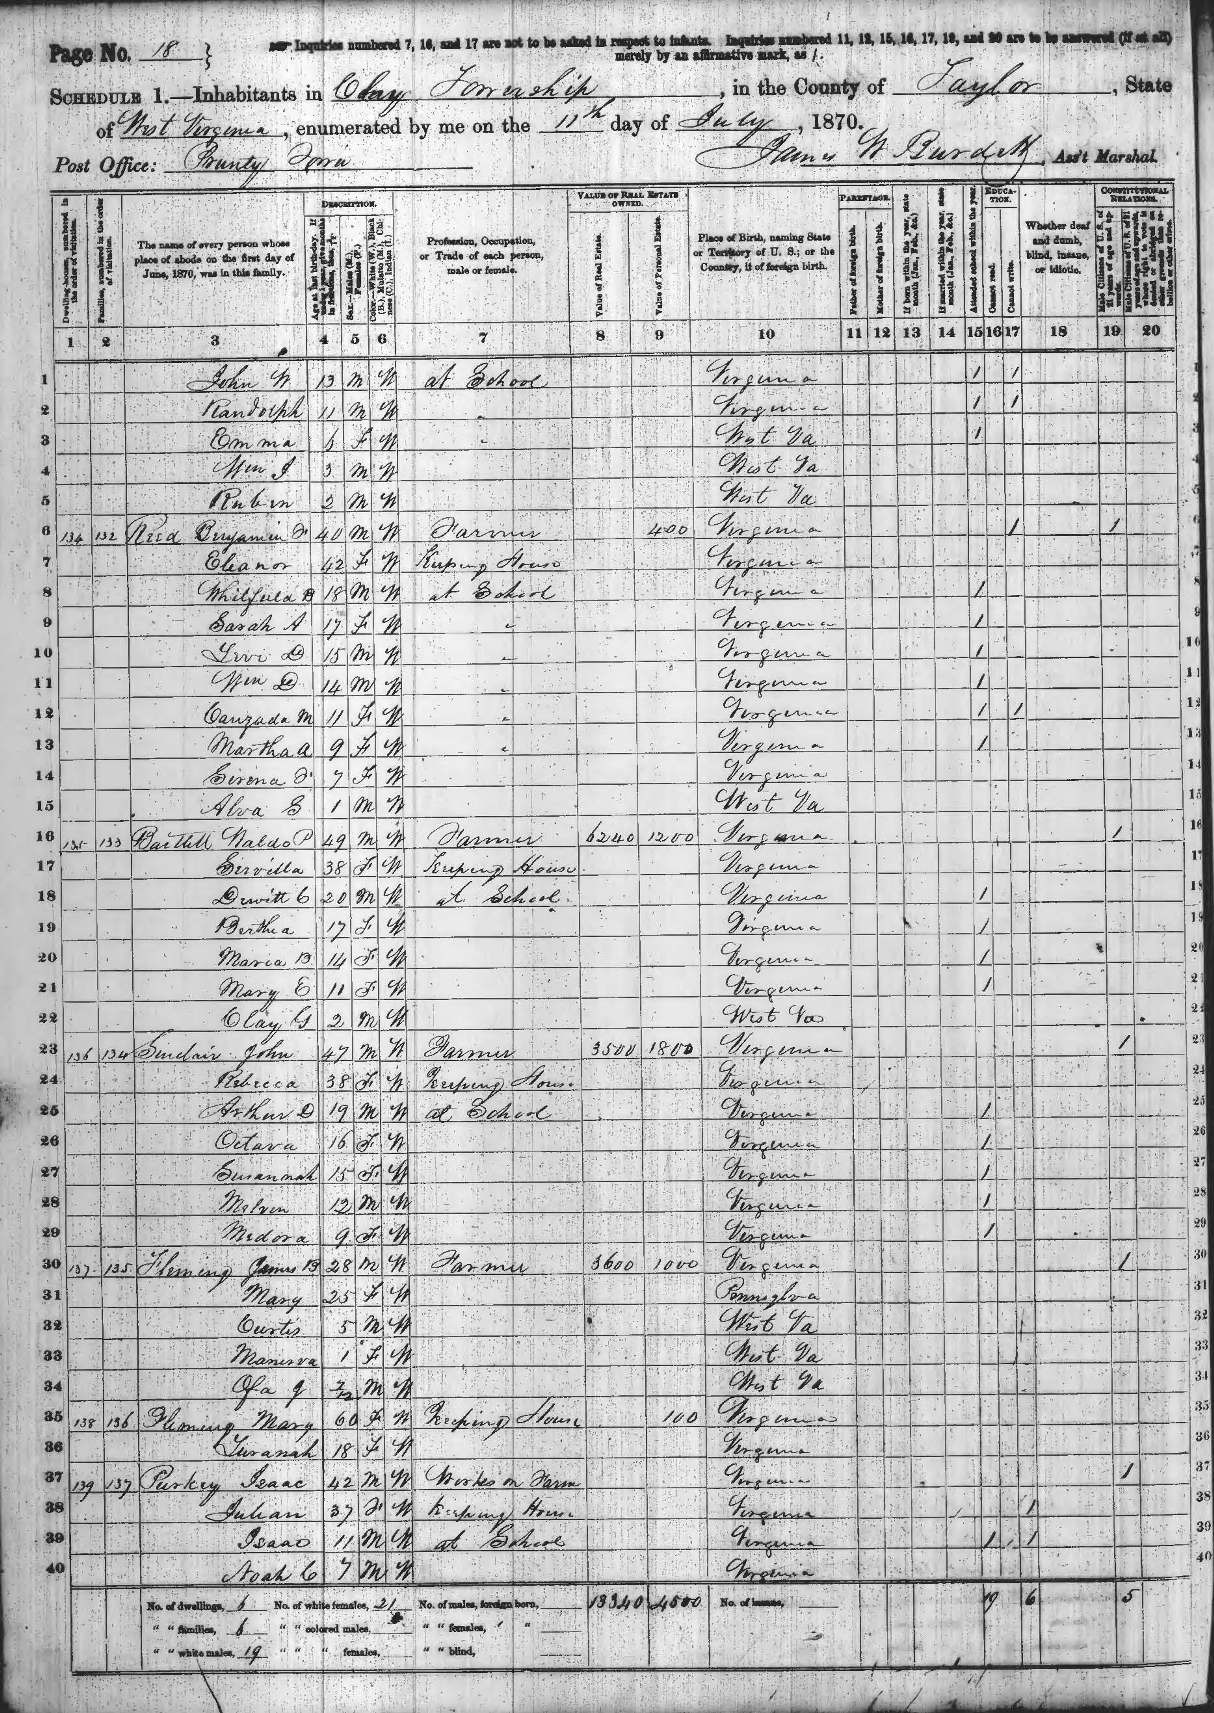 Page No. 18 }
Inquiries numbered 7, 16, and 17 are not to be asked in respect to infants. Inquiries numbered 11, 12, 15, 16, 17, 19, and 20 are to be answered (if at all)
merely by an affirmative mark, as /.
SCHEDULE 1.—Inhabitants in Clay Township, in the County of Taylor, State
of West Virginia, enumerated by me on the 11th day of July, 1870.
Post Office: Prunty Town
James W Burdett, Ass't Marshal.
DESCRIPTION. VALUE OF REAL ESTATE OWNED. PARENTAGE. EDUCATION. CONSTITUTIONAL RELATIONS.
Dwelling-houses, numbered in the order of visitation.
Families, numbered in the order of visitation.
The name of every person whose place of abode on the first day of June, 1870, was in this family.
Age at last birth-day. If under 1 year, give months in fractions, thus, 3/12
Sex.—Males (M.), Females (F.)
Color.—White (W.), Black (B.), Mulatto (M.), Chinese (C.), Indian (I.)
Profession, Occupation, or Trade of each person, male or female.
Value of Real Estate.
Value of Personal Estate.
Place of Birth, naming State or Territory of U. S.; or the Country, if of foreign birth.
Father of foreign birth.
Mother of foreign birth.
If born within the year, state month (Jan., Feb., &c.)
If married within the year, state month (Jan., Feb., &c.)
Attended school within the year.
Cannot read.
Cannot write.
Whether deaf and dumb, blind, insane, or idiotic.
Male Citizens of U. S. of 21 years of age and upwards.
Male Citizens of U. S. of 21 years of age and upwards, whose right to vote is denied or abridged on other grounds than rebellion or other crime.
1 2 3 4 5 6 7 8 9 10 11 12 13 14 15 16 17 18 19 20
1 John W 13 M W at School Virginia / / 1
2 Randolph 11 M W " Virginia / / 2
3 Emma 6 F W " West Va / 3
4 Wm J 3 M W West Va 4
5 Ruben 2 M W West Va 5
6 134 132 Reed Benjamin F 40 M W Farmer 400 Virginia / / 6
7 Eleanor 42 F W Keeping House Virginia 7
8 Whitfield B 18 M W at School Virginia / 8
9 Sarah A 17 F W " Virginia / 9
10 Levi D 15 M W " Virginia / 10
11 Wm D 14 M W " Virginia / 11
12 Canzada M 11 F W " Virginia / / 12
13 Martha A 9 F W " Virginia / 13
14 Sirena F 7 F W Virginia 14
15 Alva G 1 M W West Va 15
16 135 133 Bartlett Waldo P 49 M W Farmer 6240 1200 Virginia / 16
17 Servilla 38 F W Keeping House Virginia 17
18 Dewitt C 20 M W at School Virginia / 18
19 Berthia 17 F W Virginia / 19
20 Maria B 14 F W Virginia / 20
21 Mary E 11 F W Virginia / 21
22 Clay G 2 M W West Va 22
23 136 134 Sinclair John 47 M W Farmer 3500 1800 Virginia / 23
24 Rebecca 38 F W Keeping House Virginia 24
25 Arthur D 19 M W at School Virginia / 25
26 Octava 16 F W Virginia / 26
27 Susannah 15 F W Virginia / 27
28 Melven 12 M W Virginia / 28
29 Medora 9 F W Virginia / 29
30 137 135 Fleming James B 28 M W Farmer 3600 1000 Virginia / 30
31 Mary 25 F W Pennsylva 31
32 Curtis 5 M W West Va 32
33 Manerva 1 F W West Va 33
34 Ofa J 2/12 M W West Va 34
35 138 136 Fleming Mary 60 F W Keeping House 100 Virginia 35
36 Luranah 18 F W Virginia 36
37 139 137 Purkey Isaac 42 M W Works on Farm Virginia / 37
38 Julian 37 F W Keeping House Virginia / 38
39 Isaac 11 M W at School Virginia / / 39
40 Noah C 7 M W Virginia 40
No. of dwellings, 6 No. of white females, 21 No. of males, foreign born, 13340 4500 No. of insane, 19 6 5
" " families, 6 " " colored males, " " females, " "
" " white males, 19 " " " females, " " blind,